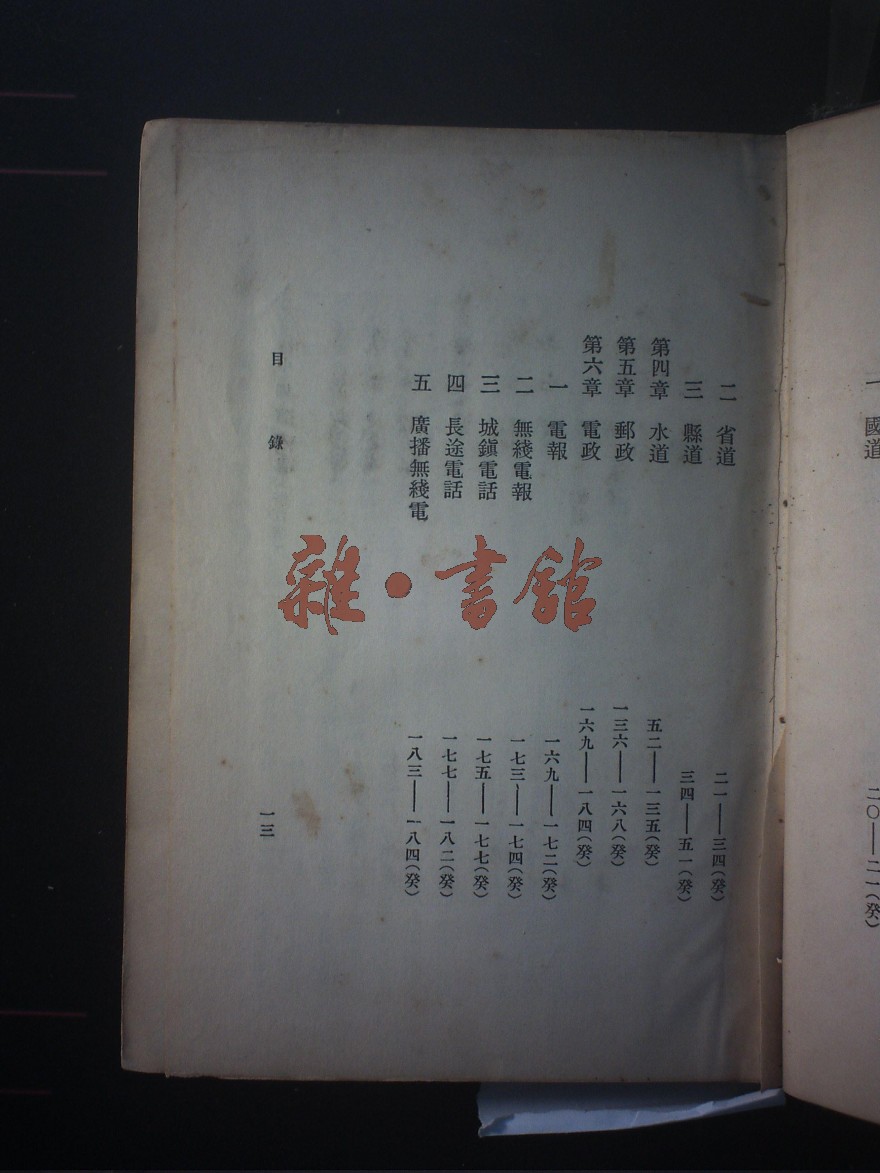 一 國道 二〇——二一(癸)
二 省道 二一——三四(癸)
三 縣道 三四——五一(癸)
第四章 水道 五二——一三五(癸)
第五章 郵政 一三六——一六八(癸)
第六章 電政 一六九——一八四(癸)
一 電報 一六九——一七二(癸)
二 無綫電報 一七三——一七四(癸)
三 城鎭電話 一七五——一七七(癸)
四 長途電話 一七七——一八二(癸)
五 廣播無綫電 一八三——一八四(癸)
目錄 一三
雜·書館